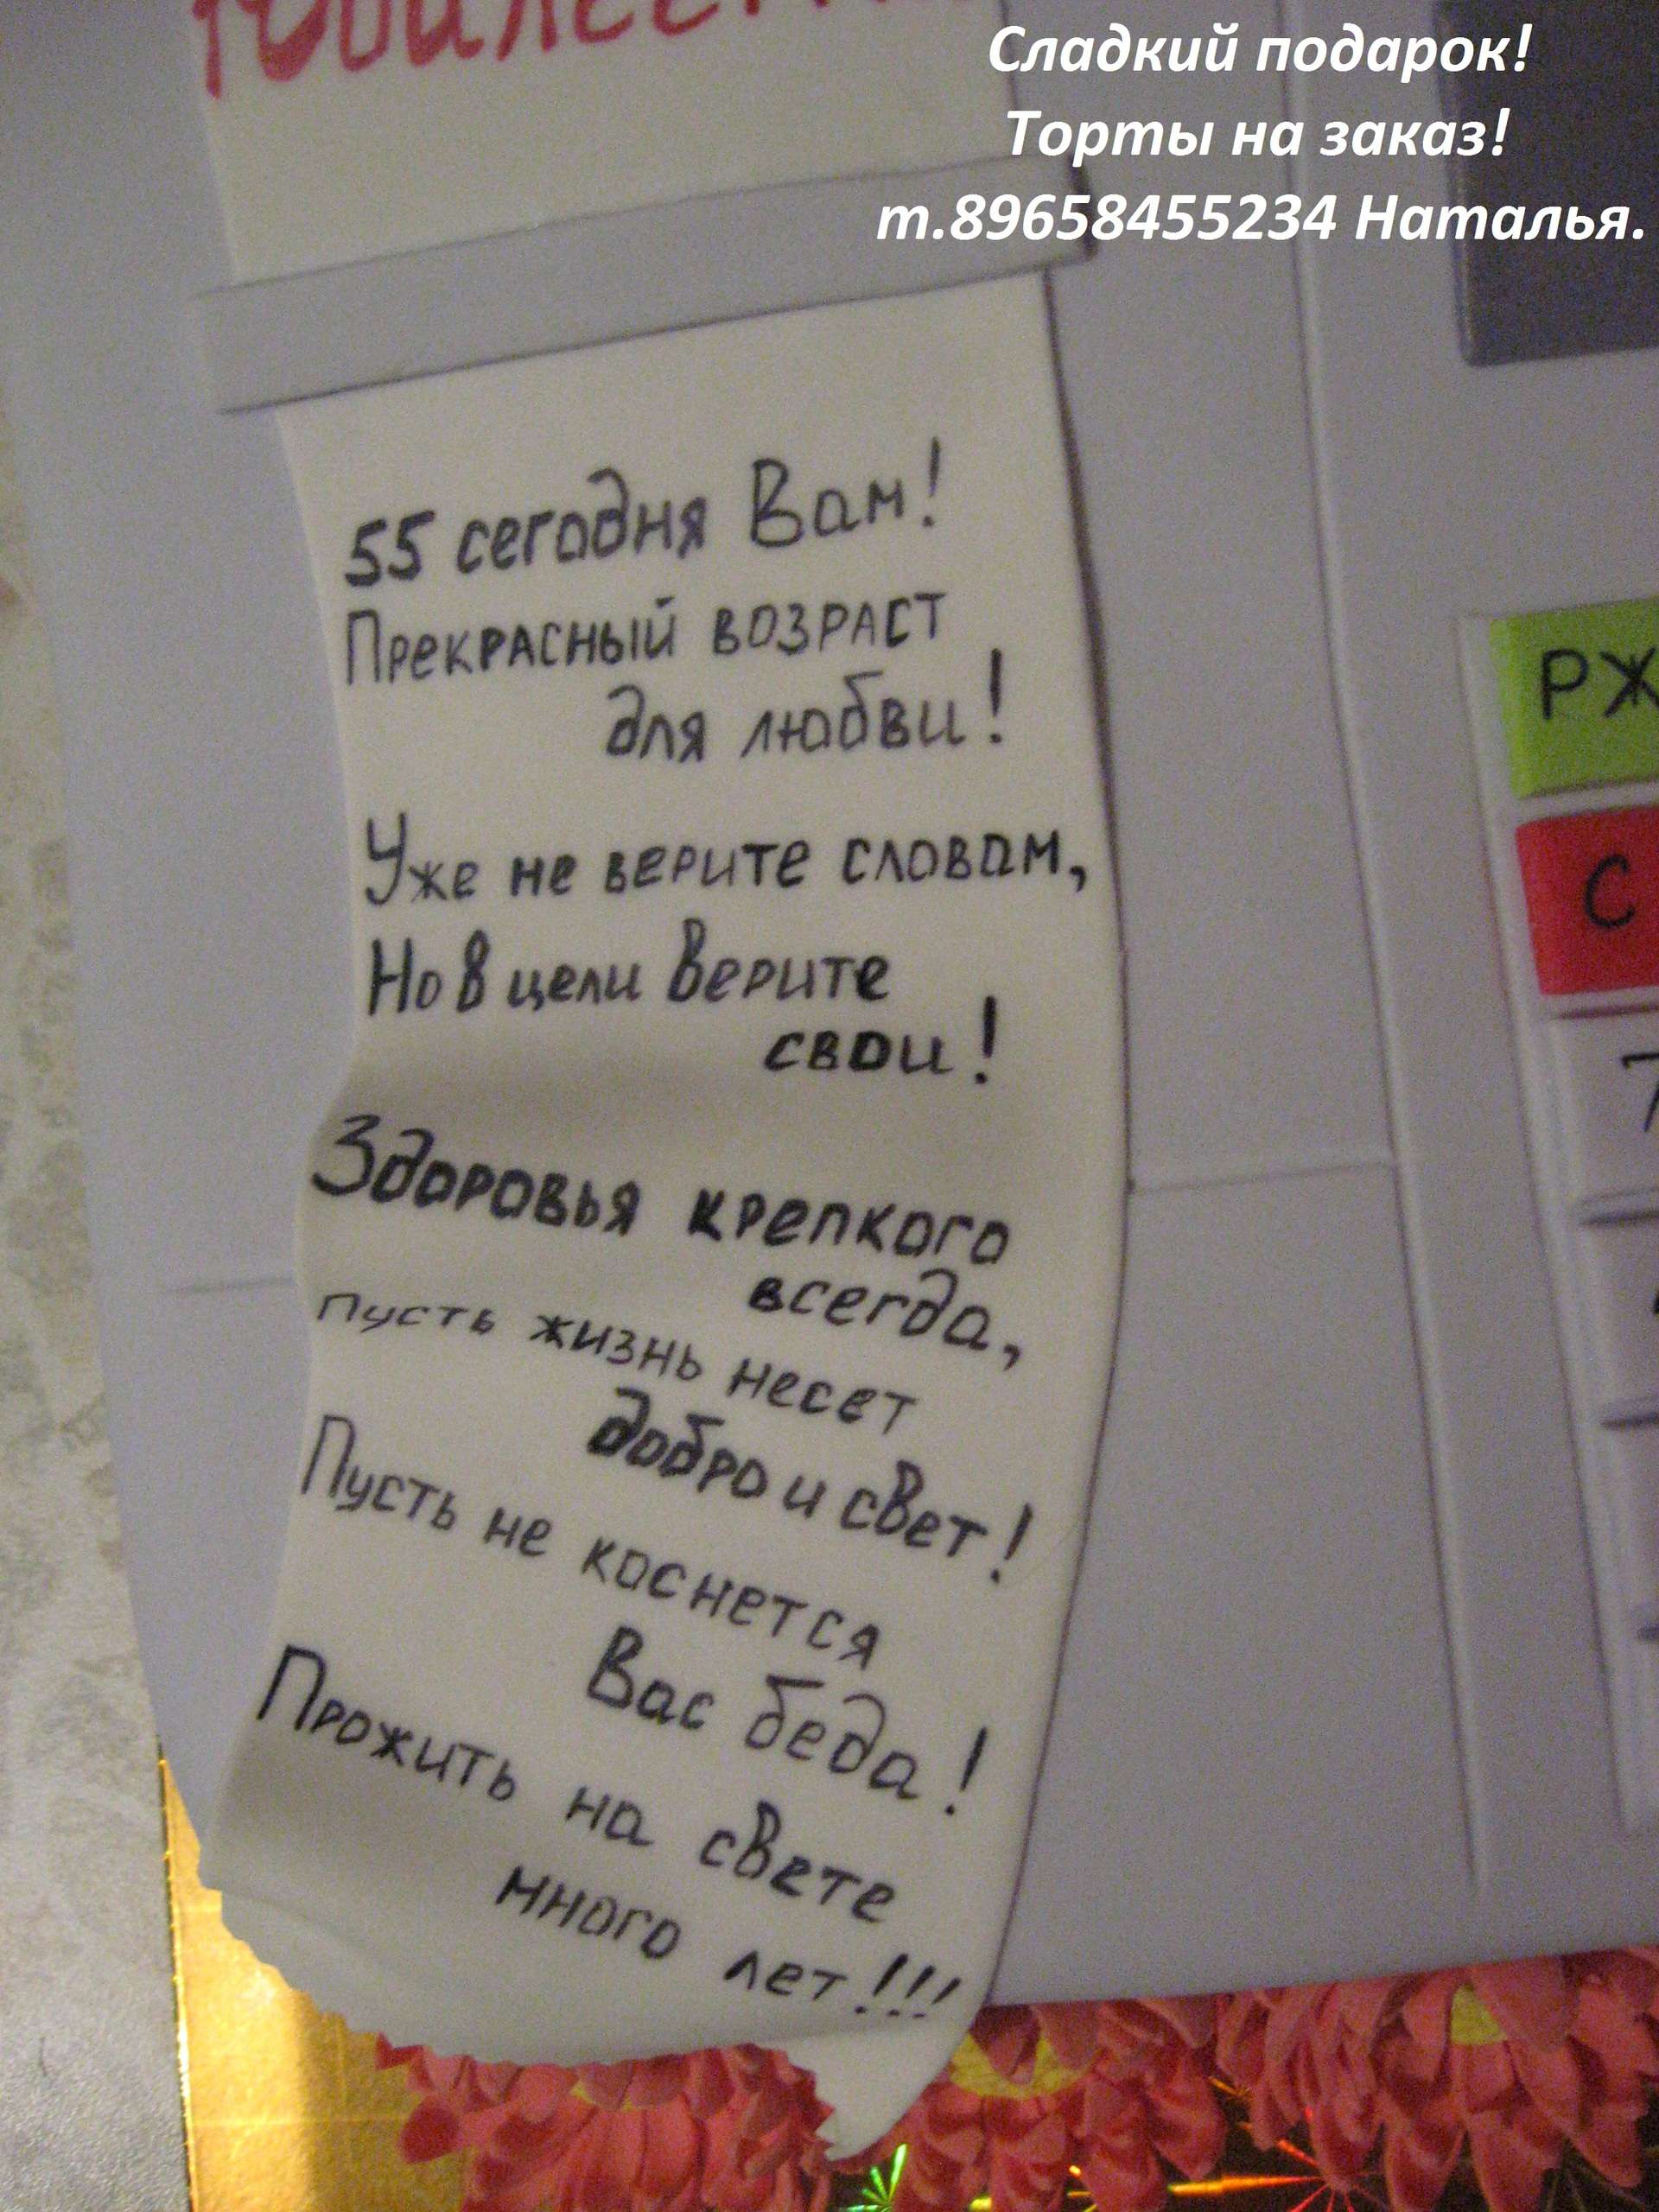 Сладкий подарок!
Торты на заказ!
т.89658455234 Наталья.
55 сегодня Вам!
Прекрасный возраст
для любви!
Уже не верите словам,
Но в цели верите
свои!
Здоровья крепкого
всегда,
пусть жизнь несет
добро и свет!
Пусть не коснется
Вас беда!
Прожить на свете
много лет!!!
РЖ
С
7